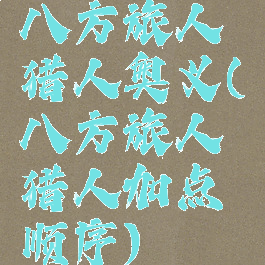 八方旅人
猎人奥义(
八方旅人
猎人加点
顺序)